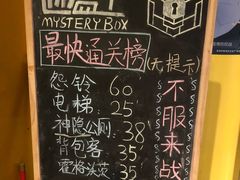 MYSTERY BOX
最快通关榜
(无提示)
怨铃 60
电梯 25'
神隐公厕 38'
背包客 35
霍格沃茨 35
不服来战